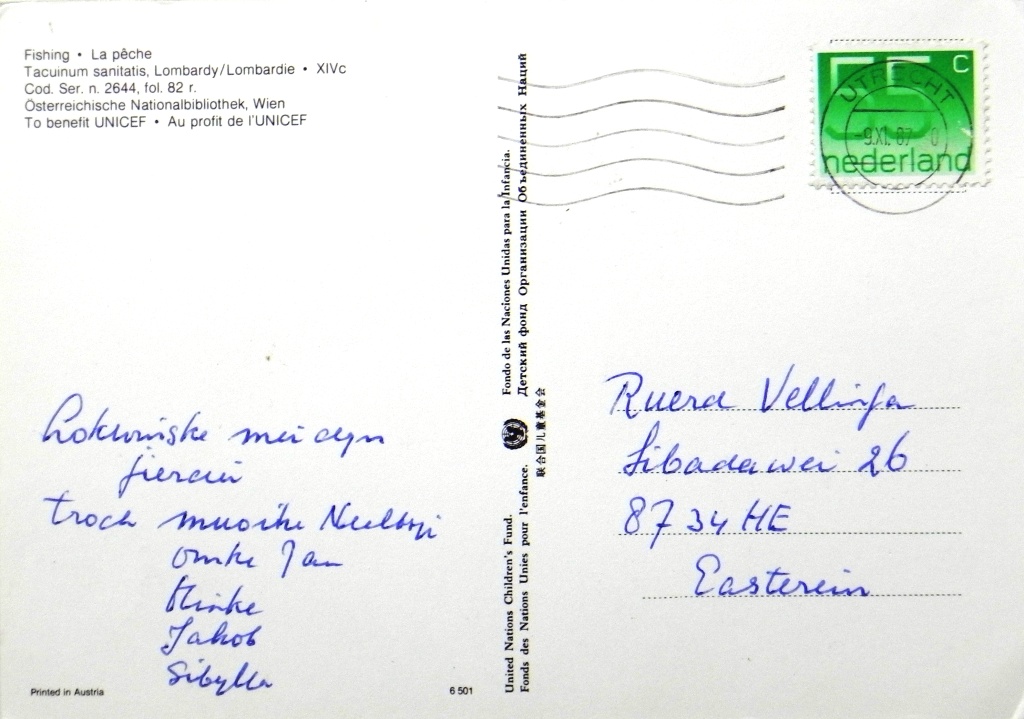 Fishing • La pêche
Tacuinum sanitatis, Lombardy/Lombardie • XIVc
Cod. Ser. n. 2644, fol. 82 r.
Österreichische Nationalbibliothek, Wien
To benefit UNICEF • Au profit de l'UNICEF
Lokwinske mei dyn
jierdei
troch muoike
omke Jan
Hinke
Jakob
Sibylla
Printed in Austria
6 501
United Nations Children's Fund.
Fonds des Nations Unies pour l'enfance.
Fondo de las Naciones Unidas para la Infancia.
Детский фонд Организации Объединенных Наций
联合国儿童基金会
55 c
nederland
UTRECHT
-9.XI.87
Ruerd Vellinga
Sibadawei 26
8734 HE
Easterein